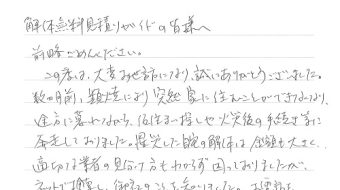 解体無料見積りガイドの皆様へ
前略ごめんください。
この度は、大変お世話になり、誠にありがとうございました。
数ヶ月前、類焼により突然家に住むことができなくなり、
途方に暮れながら、仮住まい探しや火災後の手続き等に
奔走しておりました。罹災した家の解体は金額も大きく、
適切な業者の見分け方もわからず困っておりましたが、
ネットで検索し、御社のことを知りました。